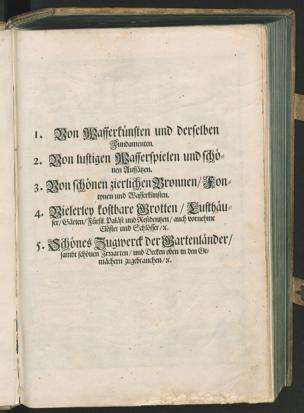 1. Von Wasserkünsten und derselben
Fundamenten.
2. Von lustigen Wasserspielen und schö-
nen Auffsätzen.
3. Von schönen zierlichen Bronnen/ Fon-
tynen und Wasserkünsten.
4. Vielerley kostbare Grotten / Lusthäu-
ser/ Gärten/ Fürstl. Paläst und Residentzen/ auch vornehme
Clöster und Schlösser/ ꝛc.
5. Schönes Zugwerck der Gartenländer/
sambt schönen Irrgarten/ und Decken oben in den Ge-
mächern zugebrauchen/ ꝛc.